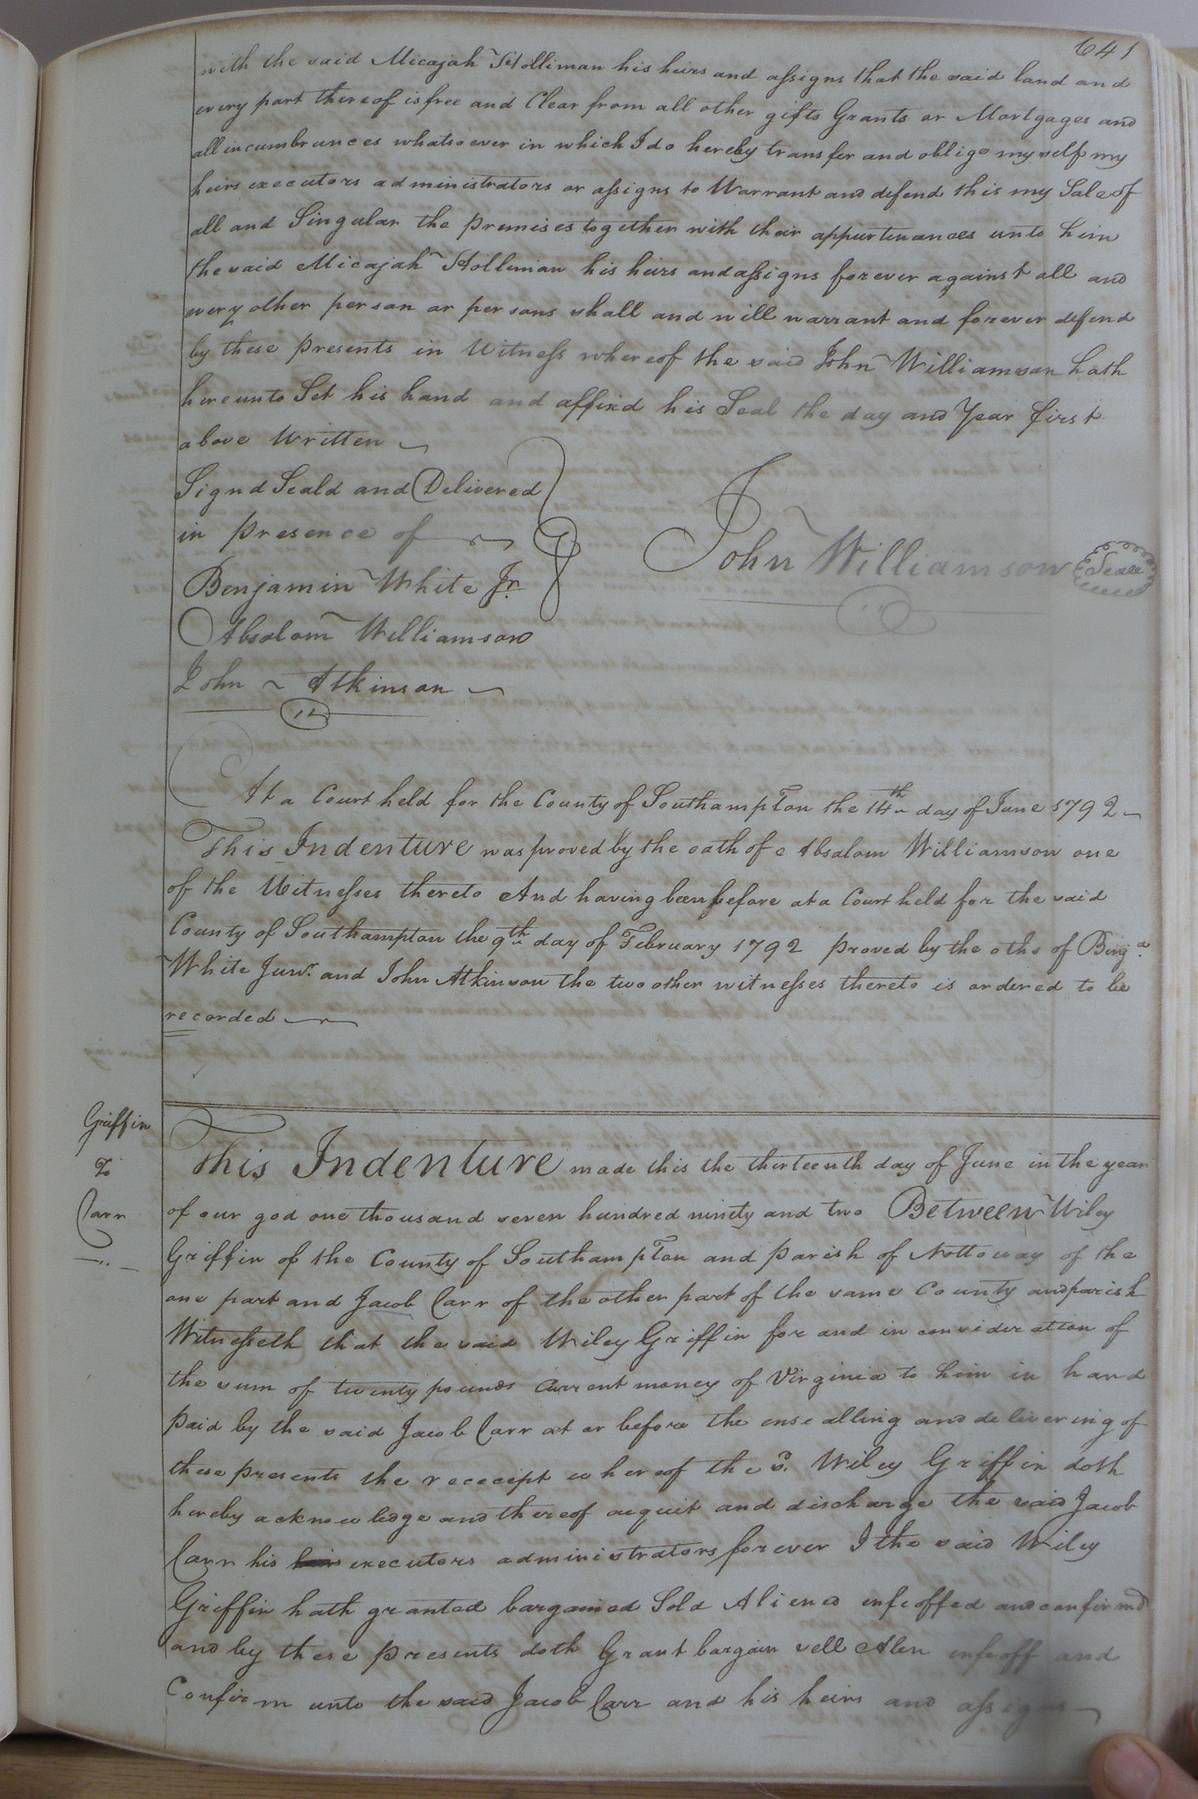 641
with the said Micajah Holliman his heirs and assigns that the said land and
every part thereof is free and Clear from all other gifts Grants or Mortgages and
all incumbrances whatsoever in which I do hereby transfer and oblige my self my
heirs executors administrators or assigns to Warrant and defend this my Sale of
all and Singular the premises together with their appurtenances unto him
the said Micajah Holliman his heirs and assigns forever against all and
every other person or persons shall and will warrant and forever defend
by these presents in Witness whereof the said John Williamson hath
hereunto Set his hand and affixd his Seal the day and Year first
above Written
Signd Seald and Delivered
in presence of
John Williamson Seal
Benjamin White Jr.
Absolom Williamson
John Atkinson
At a Court held for the County of Southampton the 14th day of June 1792
This Indenture was proved by the oath of Absalom Williamson one
of the Witnesses thereto And having been before at a Court held for the said
County of Southampton the 9th day of February 1792 proved by the oths of Benja.
White Junr. and John Atkinson the two other witnesses thereto is ordered to be
recorded
Griffin
To
Carr
This Indenture made this the thirteenth day of June in the year
of our god one thousand seven hundred ninety and two Between Wiley
Griffin of the County of Southampton and parish of Nottoway of the
one part and Jacob Carr of the other part of the same County and parish
Witnesseth that the said Wiley Griffin for and in consideration of
the sum of twenty pounds current money of Virginia to him in hand
paid by the said Jacob Carr at or before the ensealling and delivering of
these presents the rececipt whereof the sd. Wiley Griffin doth
hereby acknowledge and thereof acquit and discharge the said Jacob
Carr his executors administrators forever I the said Wiley
Griffin hath granted bargained Sold Aliend infeoffed and confirmd
and by these presents doth Grant bargain sell Alen infeoff and
Confirm unto the said Jacob Carr and his heirs and assigns